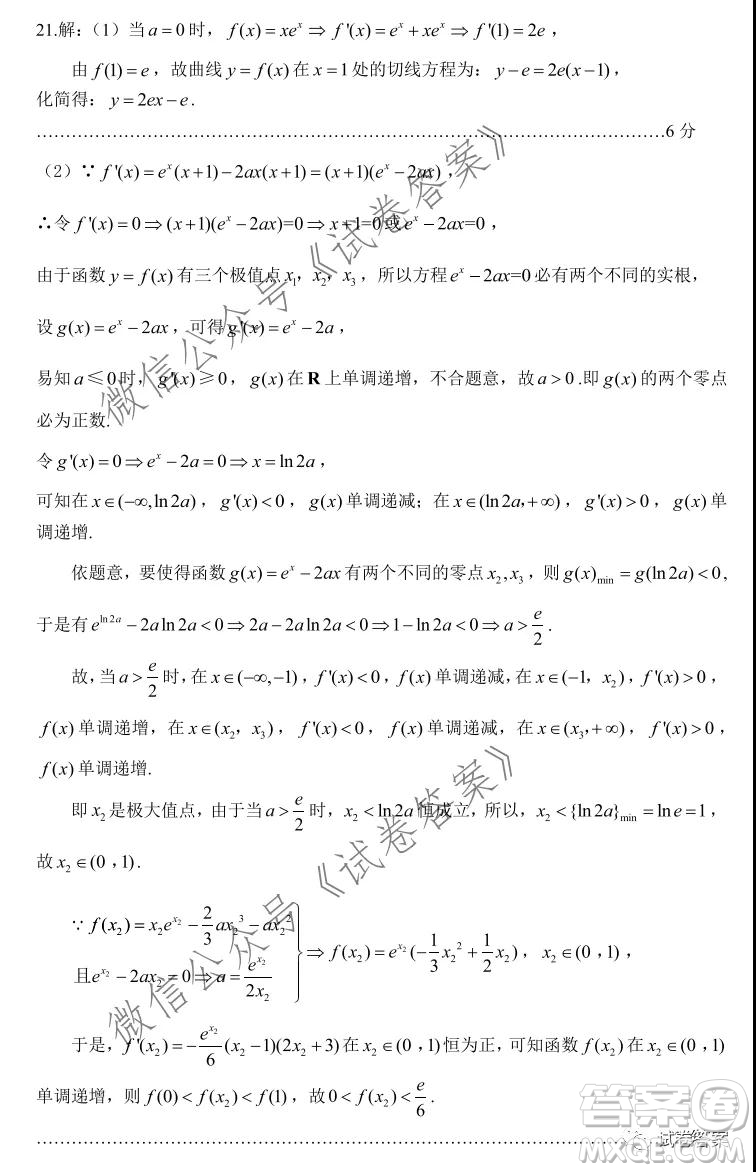 21.解:（1）当 a = 0 时，f(x) = xeˣ ⇒ f'(x) = eˣ + xeˣ ⇒ f'(1) = 2e，
由 f(1) = e，故曲线 y = f(x) 在 x = 1 处的切线方程为: y − e = 2e(x − 1)，
化简得: y = 2ex − e .
……………………………………………………………………………………………6 分
（2）∵ f'(x) = eˣ(x+1) − 2ax(x+1) = (x+1)(eˣ − 2ax)，
∴令 f'(x) = 0 ⇒ (x+1)(eˣ − 2ax)=0 ⇒ x+1=0或eˣ − 2ax=0，
由于函数 y = f(x) 有三个极值点 x₁，x₂，x₃，所以方程 eˣ − 2ax=0 必有两个不同的实根，
设 g(x) = eˣ − 2ax，可得 g'(x) = eˣ − 2a，
易知 a ≤ 0 时，g'(x) ≥ 0，g(x) 在 R 上单调递增，不合题意，故 a > 0 .即 g(x) 的两个零点
必为正数.
令 g'(x) = 0 ⇒ eˣ − 2a = 0 ⇒ x = ln 2a，
可知在 x∈(−∞, ln 2a)，g'(x) < 0，g(x) 单调递减；在 x∈(ln 2a,+∞)，g'(x) > 0，g(x) 单
调递增.
依题意，要使得函数 g(x) = eˣ − 2ax 有两个不同的零点 x₂, x₃，则 g(x)min = g(ln 2a) < 0,
于是有 e^(ln 2a) − 2a ln 2a < 0 ⇒ 2a − 2a ln 2a < 0 ⇒ 1 − ln 2a < 0 ⇒ a > e/2 .
故，当 a > e/2 时，在 x∈(−∞, −1)，f'(x) < 0，f(x) 单调递减，在 x∈(−1，x₂)，f'(x) > 0，
f(x) 单调递增，在 x∈(x₂，x₃)，f'(x) < 0，f(x) 单调递减，在 x∈(x₃,+∞)，f'(x) > 0，
f(x) 单调递增.
即 x₂ 是极大值点，由于当 a > e/2 时，x₂ < ln 2a 恒成立，所以，x₂ < {ln 2a}min = ln e = 1，
故 x₂∈(0，1).
∵ f(x₂) = x₂e^(x₂) − (2/3)ax₂³ − ax₂²
且e^(x₂) − 2ax₂ = 0 ⇒ a = e^(x₂)/(2x₂) } ⇒ f(x₂) = e^(x₂)(−(1/3)x₂² + (1/2)x₂)，x₂∈(0，1)，
于是，f'(x₂) = −(e^(x₂)/6)(x₂ − 1)(2x₂ + 3) 在 x∈(0，1) 恒为正，可知函数 f(x₂) 在 x∈(0，1)
单调递增，则 f(0) < f(x₂) < f(1)，故 0 < f(x₂) < e/6 .
……………………………………………………………………………………………
微信公众号《试卷答案》
微信公众号《试卷答案》
试卷答案
答案圈
MXQE.COM